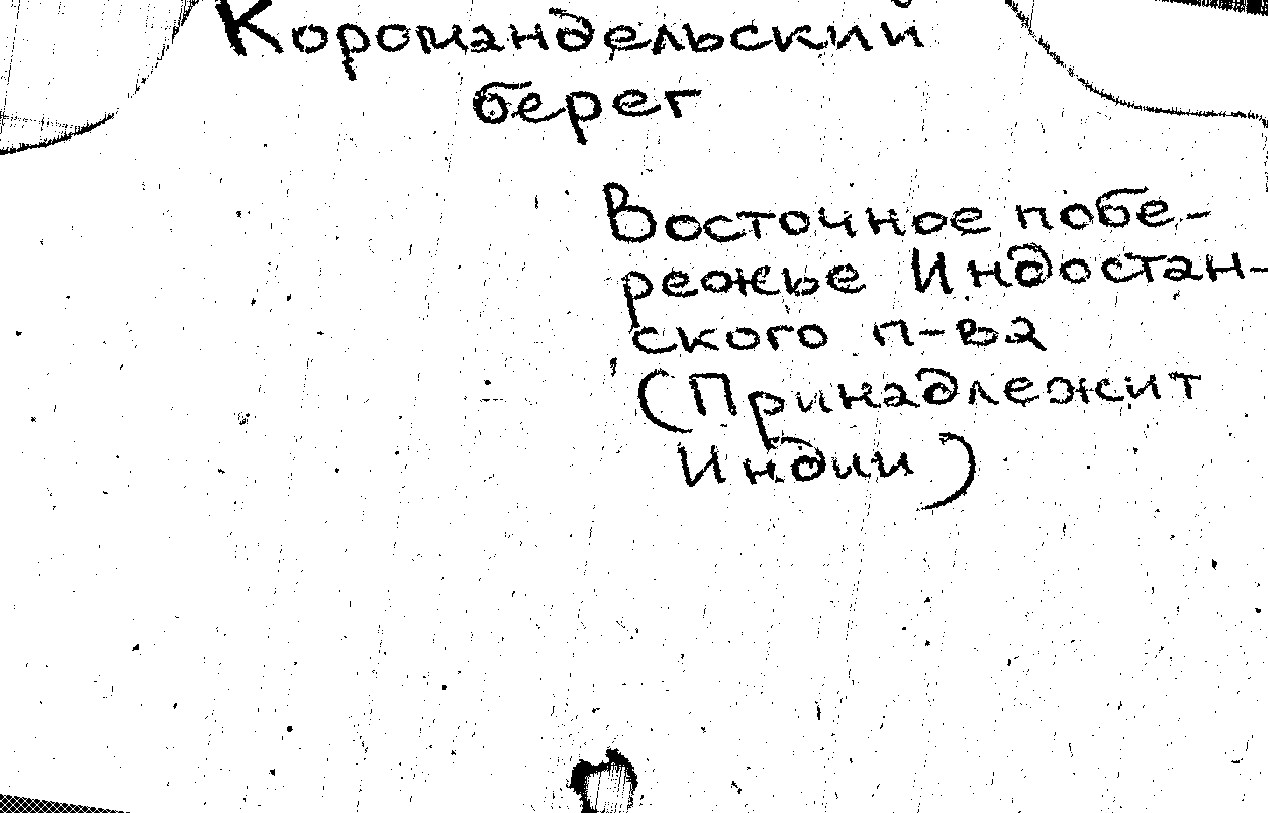 Коромандельский
берег
Восточное побе-
режье Индостан-
ского п-ва
(Принадлежит
Индии)